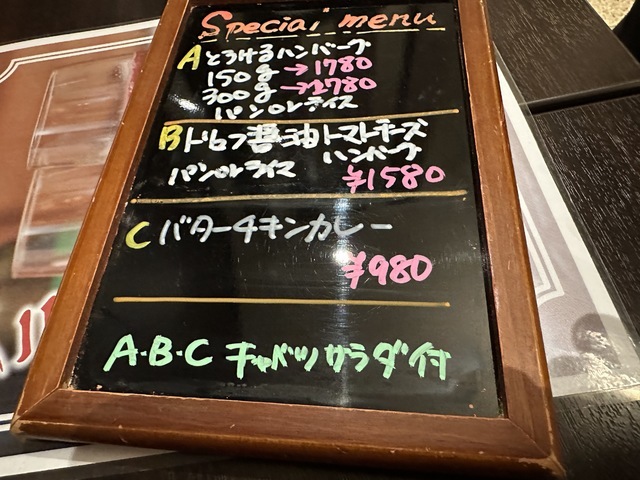 Special menu
A とろけるハンバーグ
150g→1780
300g→2780
パンorライス
B トリュフ醤油トマトチーズ
ハンバーグ
パンorライス ¥1580
C バターチキンカレー
¥980
A・B・C キャベツサラダ付